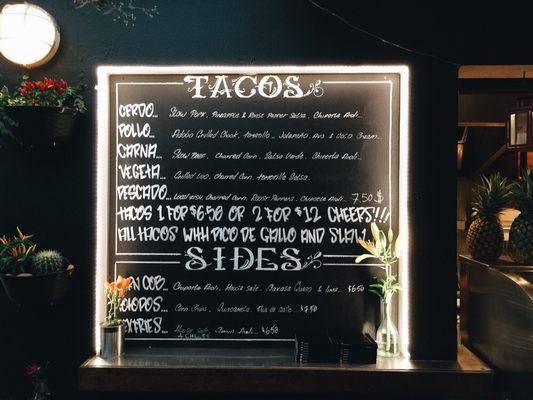 TACOS
CERDO... Slow Pork, Pineapple & Roast Pepper Salsa, Chipotle Aioli...
POLLO... Pablo Grilled Chook, Tomatillo Jalapeño, Avo & Coco Cream...
CARNA... Slow Charred Corn, Salsa Verde, Chipotle Aioli...
VEGETA... Grilled Charred Corn, Tomatillo Salsa.
PESCADO... Local Fish, Charred Corn, Roast Peppers, Chipotle Aioli... 7.50 $
TACOS 1 FOR $6.50 OR 2 FOR $12 CHEERS!!!
ALL TACOS WITH PICO DE GALLO AND SLAW
SIDES
COB... Chipotle Aioli, House Salt, Oaxaca Queso & Lime $6.50
Corn Chips, Guacamole, Pico de Gallo $7.50
FRIES... House Salt, Aioli... $6.50